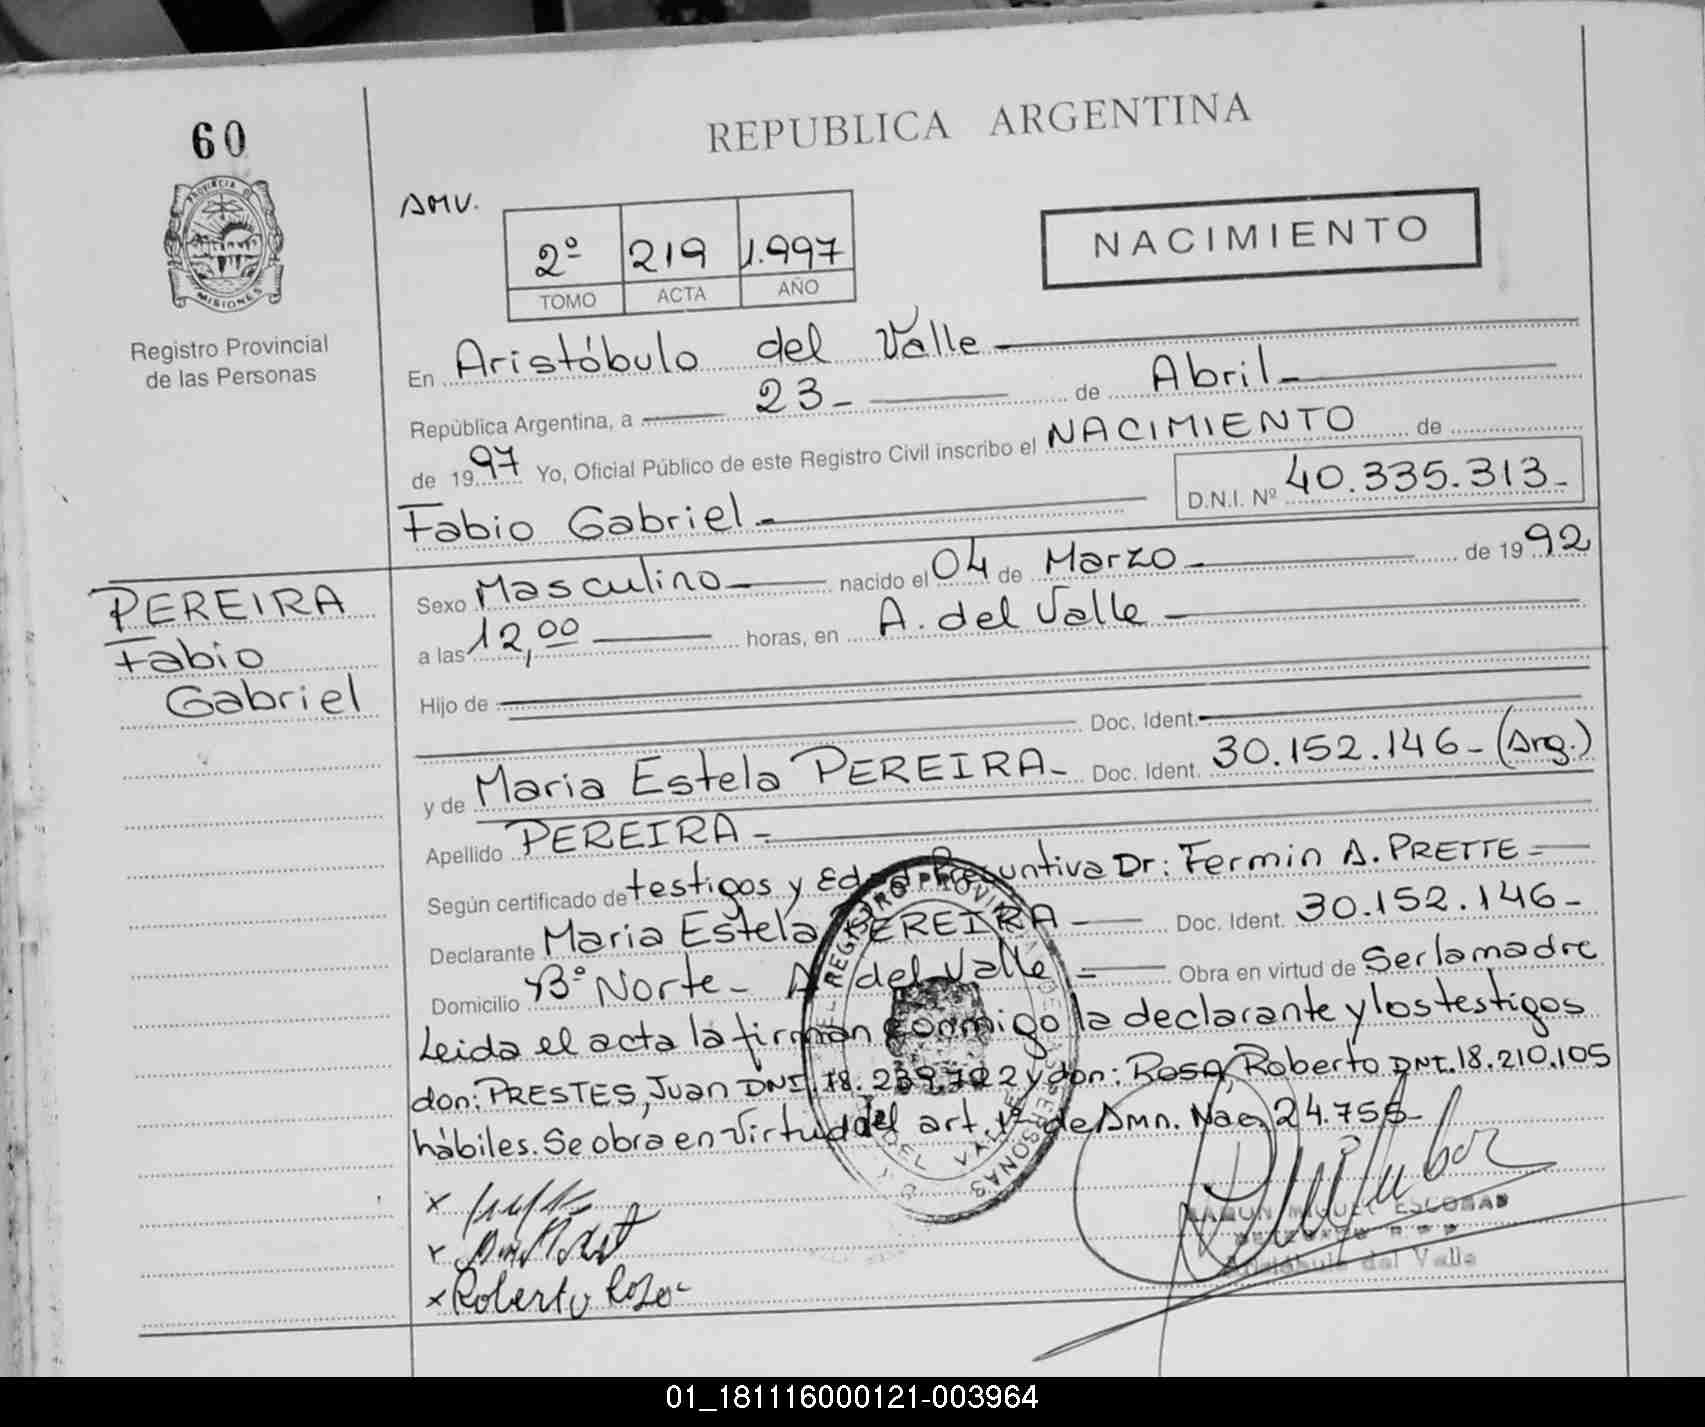 60
REPUBLICA ARGENTINA
PROVINCIA DE
MISIONES
AMV.
2º 219 1.997
TOMO ACTA AÑO
NACIMIENTO
Registro Provincial
de las Personas
En Aristóbulo del Valle
República Argentina, a 23- de Abril-
de 1997 Yo, Oficial Público de este Registro Civil inscribo el NACIMIENTO de
Fabio Gabriel- D.N.I. Nº 40.335.313-
PEREIRA
Fabio
Gabriel
Sexo Masculino nacido el 04 de Marzo- de 1992
a las 12,00 horas, en A. del Valle
Hijo de
Doc. Ident.
y de Maria Estela PEREIRA- Doc. Ident. 30.152.146-(Arg.)
Apellido PEREIRA-
Según certificado de testigos y Edad Presuntiva Dr: Fermin A. PRETTE=
Declarante Maria Estela PEREIRA Doc. Ident. 30.152.146-
Domicilio Bº Norte- A. del Valle= Obra en virtud de Ser la madre
Leida el acta la firman conmigo la declarante y los testigos
don: PRESTES, Juan DNI. 18. y don: ROSA, Roberto DNI. 18.210.105
hàbiles. Se obra en virtud del art. 1º de Amn. Nac. 24.755-
REGISTRO PROVINCIAL DE LAS PERSONAS
x
x
x Roberto Rosa
RAMON MIGUEL ESCOBAR
DELEGADO R P P
Aristóbulo del Valle
01_181116000121-003964